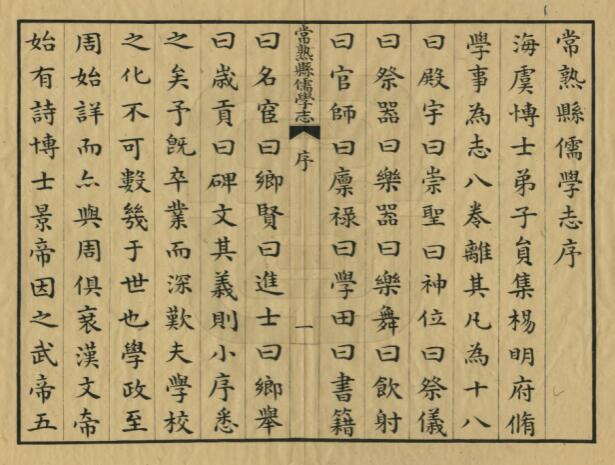 常熟縣儒學志序
海虞博士弟子員集楊明府脩
學事為志八卷離其凡為十八
曰殿宇曰崇聖曰神位曰祭儀
曰祭器曰樂器曰樂舞曰飲射
曰官師曰廩祿曰學田曰書籍
常熟縣儒學志 序 一
曰名宦曰鄉賢曰進士曰鄉舉
曰歲貢曰碑文其義則小序悉
之矣予既卒業而深歎夫學校
之化不可數幾于世也學政至
周始詳而亦與周俱衰漢文帝
始有詩博士景帝因之武帝五